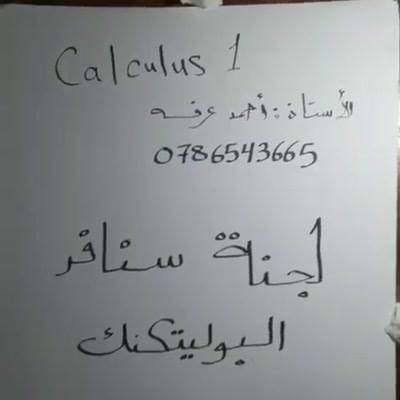 Calculus 1
الأستاذ: أحمد عرفه
0786543665
لجنة سنافر
البوليتكنك